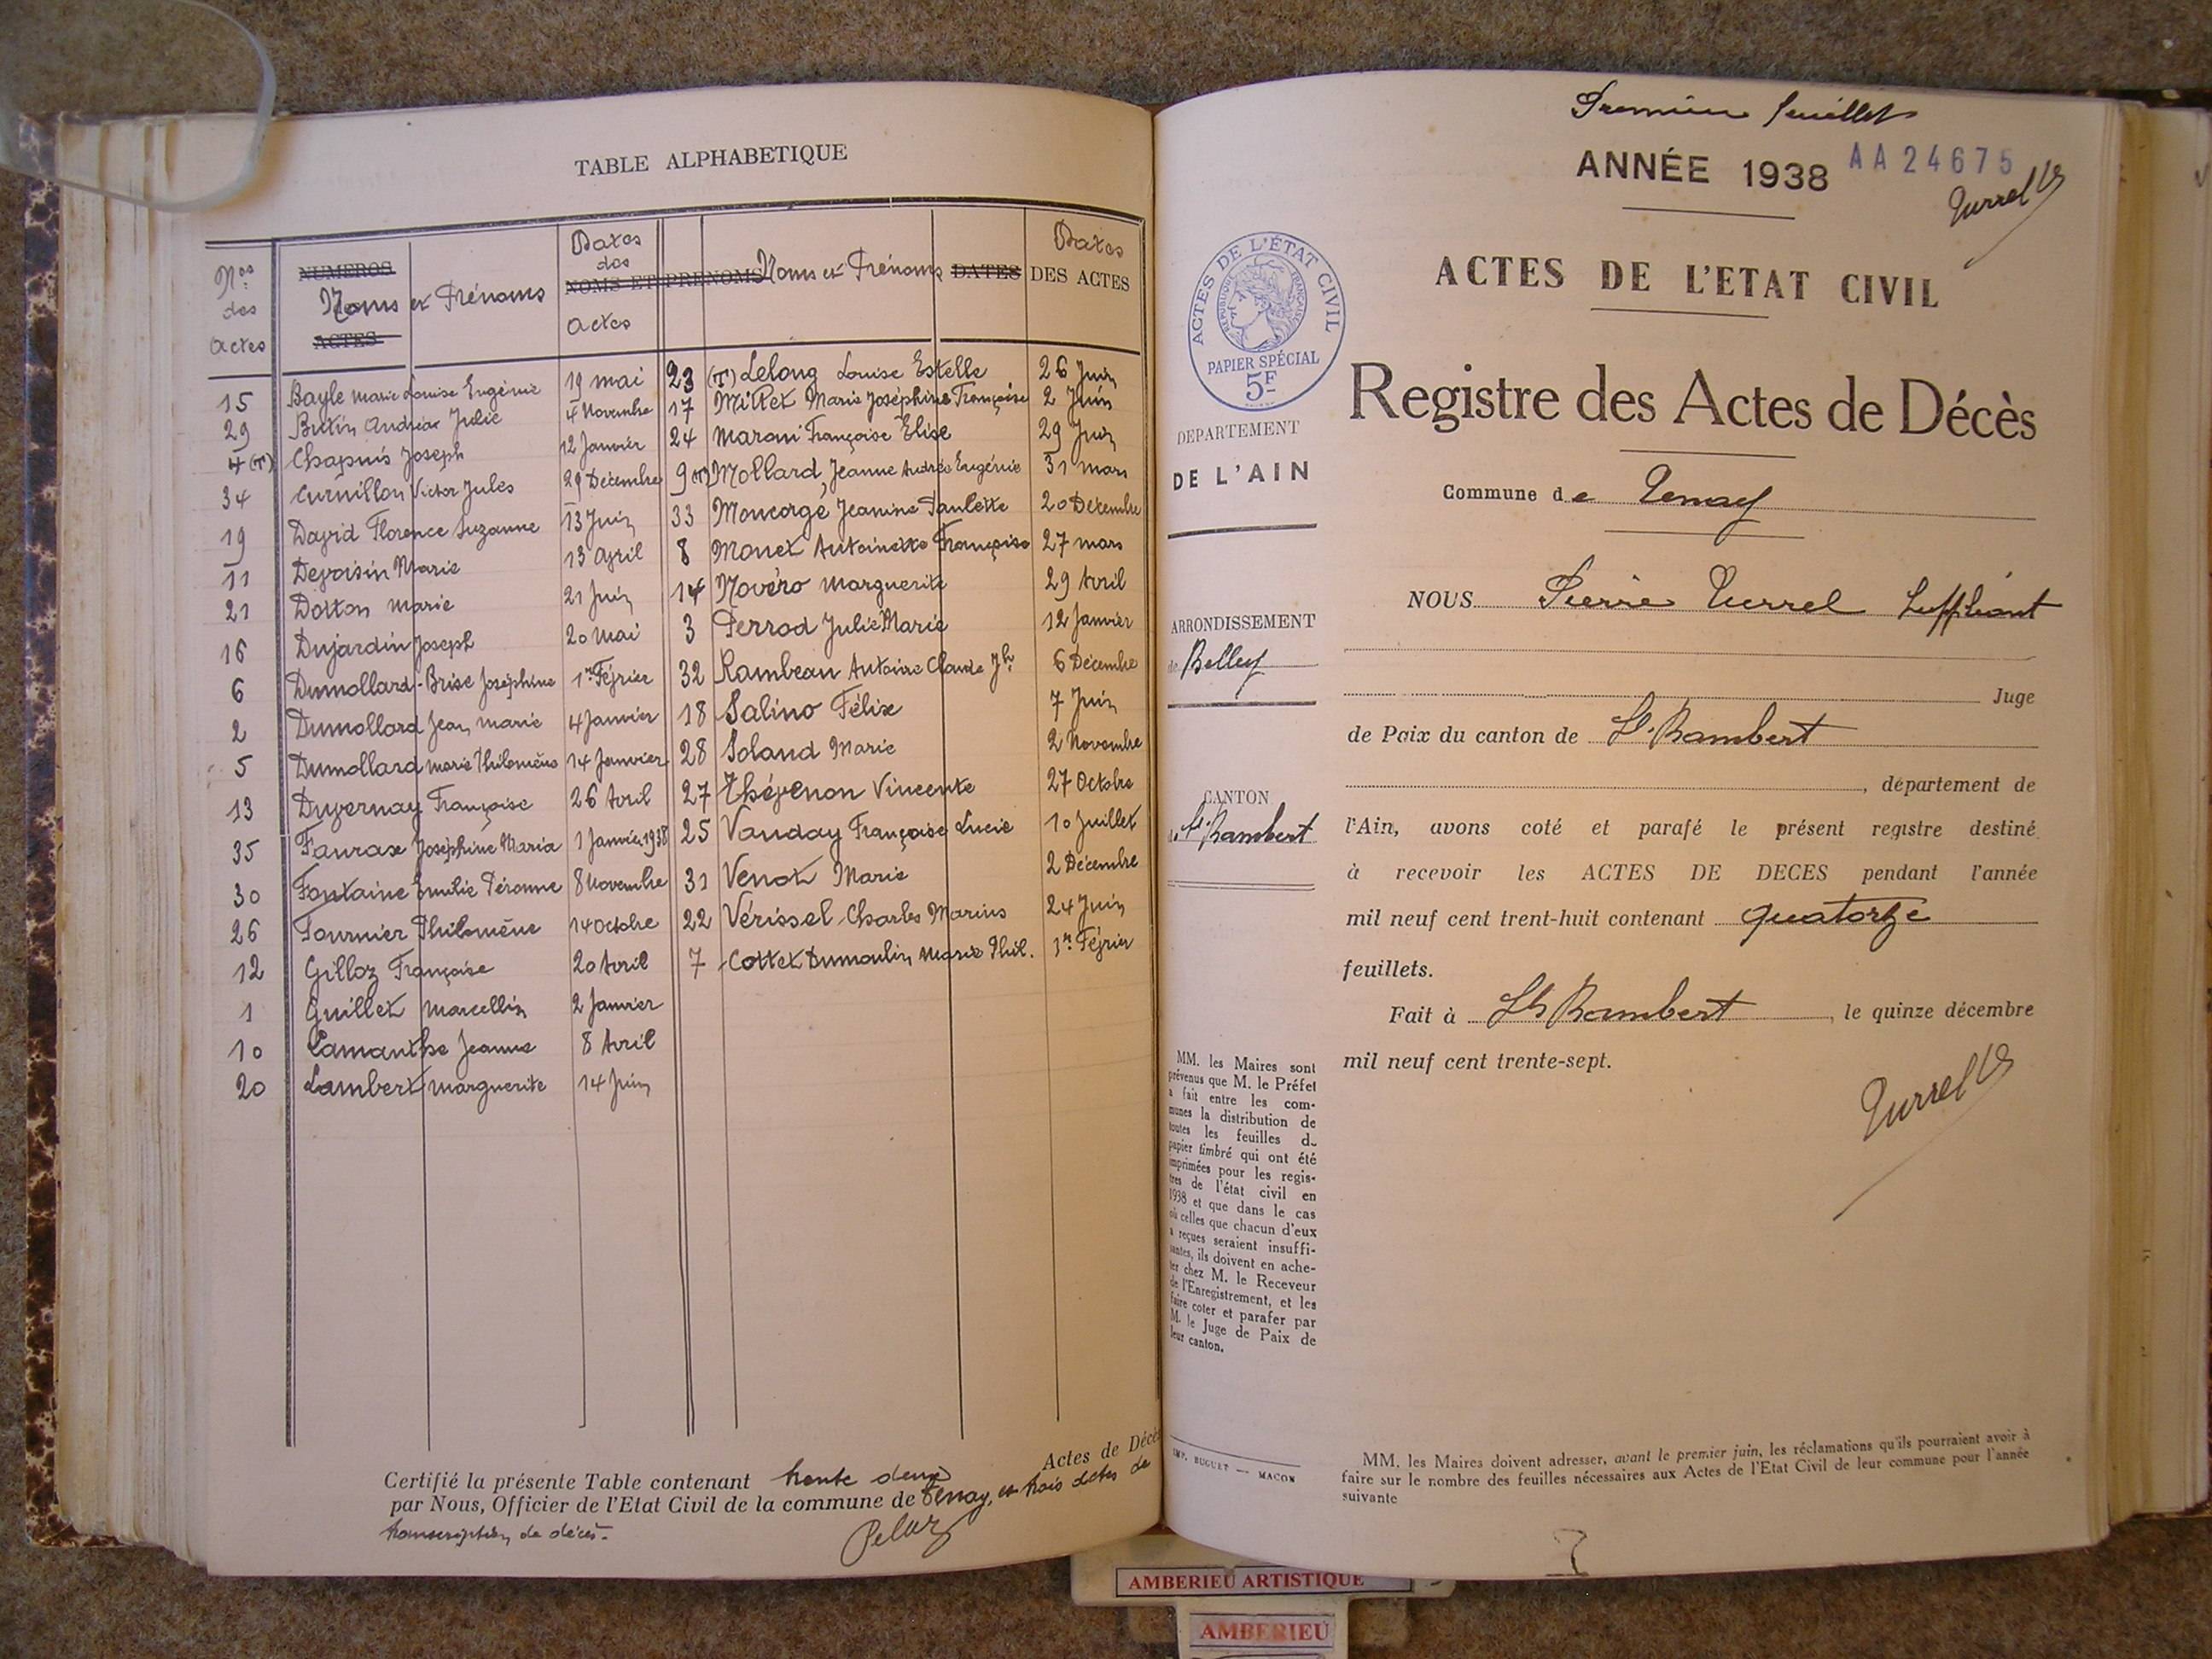 TABLE ALPHABETIQUE
Nos des Actes
NUMEROS
Noms et Prénoms
ACTES
Dates des
NOMS ET PRENOMS
Actes
Noms et Prénoms
DATES
Dates
DES ACTES
15 Bayle Marie Louise Eugénie 19 mai
29 Butin Andréa Julie 4 Novembre
4 (T) Chapuis Joseph 12 Janvier
34 Curnillon Victor Jules 29 Décembre
19 David Florence Suzanne 13 Juin
11 Devoisin Marie 13 Avril
21 Dotton Marie 21 Juin
16 Dujardin Joseph 20 Mai
6 Dumollard-Brise Joséphine 1er Février
2 Dumollard Jean Marie 4 Janvier
5 Dumollard Marie Philomène 14 Janvier
13 Duvernay Françoise 26 Avril
35 Faurax Joséphine Maria 1 Janvier 1938
30 Fontaine Emilie Péronne 8 Novembre
26 Fournier Philomène 14 Octobre
12 Gilloz Françoise 20 Avril
1 Guillet Marcellin 2 Janvier
10 Lamanthe Jeanne 8 Avril
20 Lambert Marguerite 14 Juin
23 (T) Lelong Louise Estelle 26 Juin
17 Millet Marie Joséphine Françoise 2 Juin
24 Maroni Françoise Elise 29 Juin
9 (T) Mollard, Jeanne Andrée Eugénie 31 mars
33 Moncorgé Jeanine Paulette 20 Décembre
8 Monet Antoinette Françoise 27 mars
14 Novéro Marguerite 29 Avril
3 Perrod Julie Marie 12 Janvier
32 Rambeau Antoine Claude Jh 6 Décembre
18 Salino Félix 7 Juin
28 Soland Marie 2 Novembre
27 Thévenon Vincente 27 Octobre
25 Vauday Françoise Lucie 10 Juillet
31 Venot Marie 2 Décembre
22 Vérissel Charles Marius 24 Juin
7 Cottet Dumoulin Marie Phil. 1er Février
Certifié la présente Table contenant trente deux Actes de Décès
par Nous, Officier de l'Etat Civil de la commune de Tenay, et trois actes de
transcription de décès.
Pelaz
Premier feuillet
ANNÉE 1938 AA24675
Turrel
ACTES DE L'ETAT CIVIL
ACTES DE L'ÉTAT CIVIL
RÉPUBLIQUE FRANÇAISE
PAPIER SPÉCIAL
5F
Registre des Actes de Décès
DEPARTEMENT
DE L'AIN
Commune de Tenay
ARRONDISSEMENT
de Belley
CANTON
de St Rambert
NOUS Pierre Turrel Suppléant
Juge
de Paix du canton de St. Rambert
, département de
l'Ain, avons coté et parafé le présent registre destiné
à recevoir les ACTES DE DECES pendant l'année
mil neuf cent trent-huit contenant quatorze
feuillets.
Fait à St Rambert, le quinze décembre
mil neuf cent trente-sept.
Turrel
MM. les Maires sont
prévenus que M. le Préfet
a fait entre les com-
munes la distribution de
toutes les feuilles du
papier timbré qui ont été
imprimées pour les regis-
tres de l'état civil en
1938 et que dans le cas
où celles que chacun d'eux
a reçues seraient insuffi-
santes, ils doivent en ache-
ter chez M. le Receveur
de l'Enregistrement, et les
faire coter et parafer par
M. le Juge de Paix de
leur canton.
IMP. BUGUET — MACON
MM. les Maires doivent adresser, avant le premier juin, les réclamations qu'ils pourraient avoir à
faire sur le nombre des feuilles nécessaires aux Actes de l'Etat Civil de leur commune pour l'année
suivante
AMBERIEU ARTISTIQUE
AMBERIEU